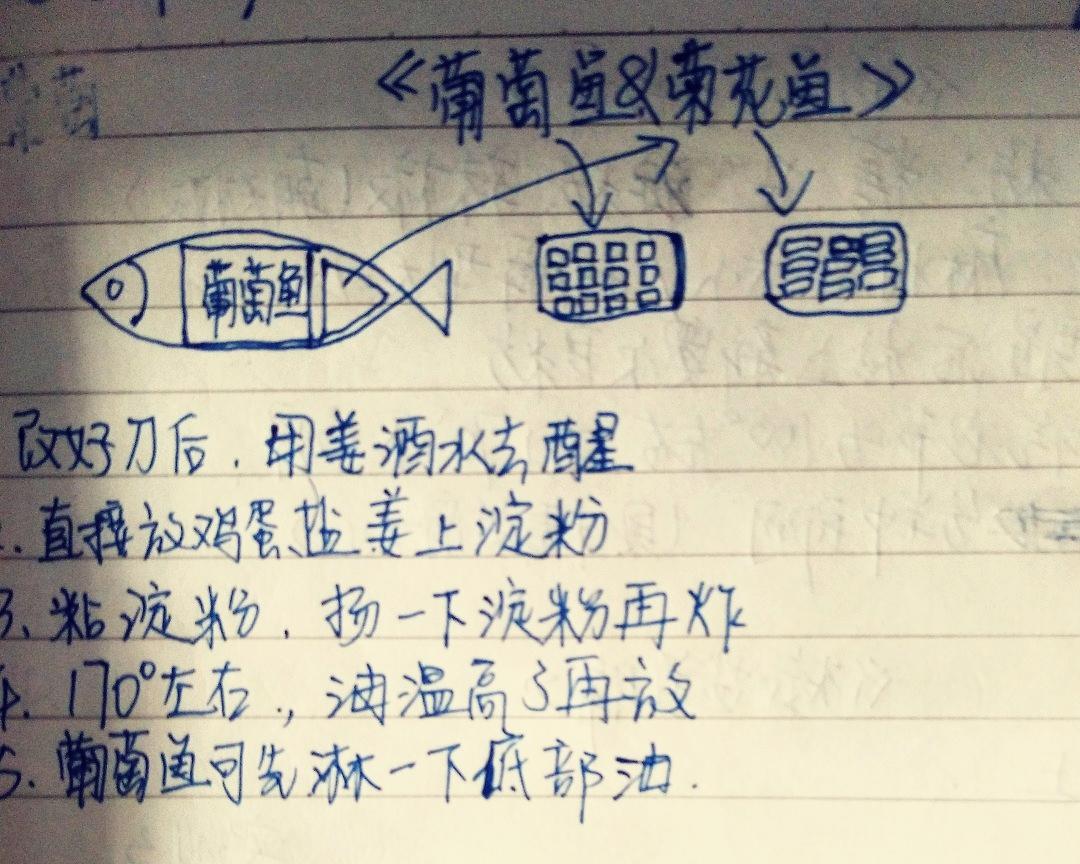 《葡萄鱼&菊花鱼》
葡萄
葡萄鱼
改好刀后.用姜酒水去醒
直接放鸡蛋盐姜上淀粉
3、粘淀粉.扬一下淀粉再炸
4.170°左右.,油温高了再放
5.葡萄鱼可先淋一下底部油.